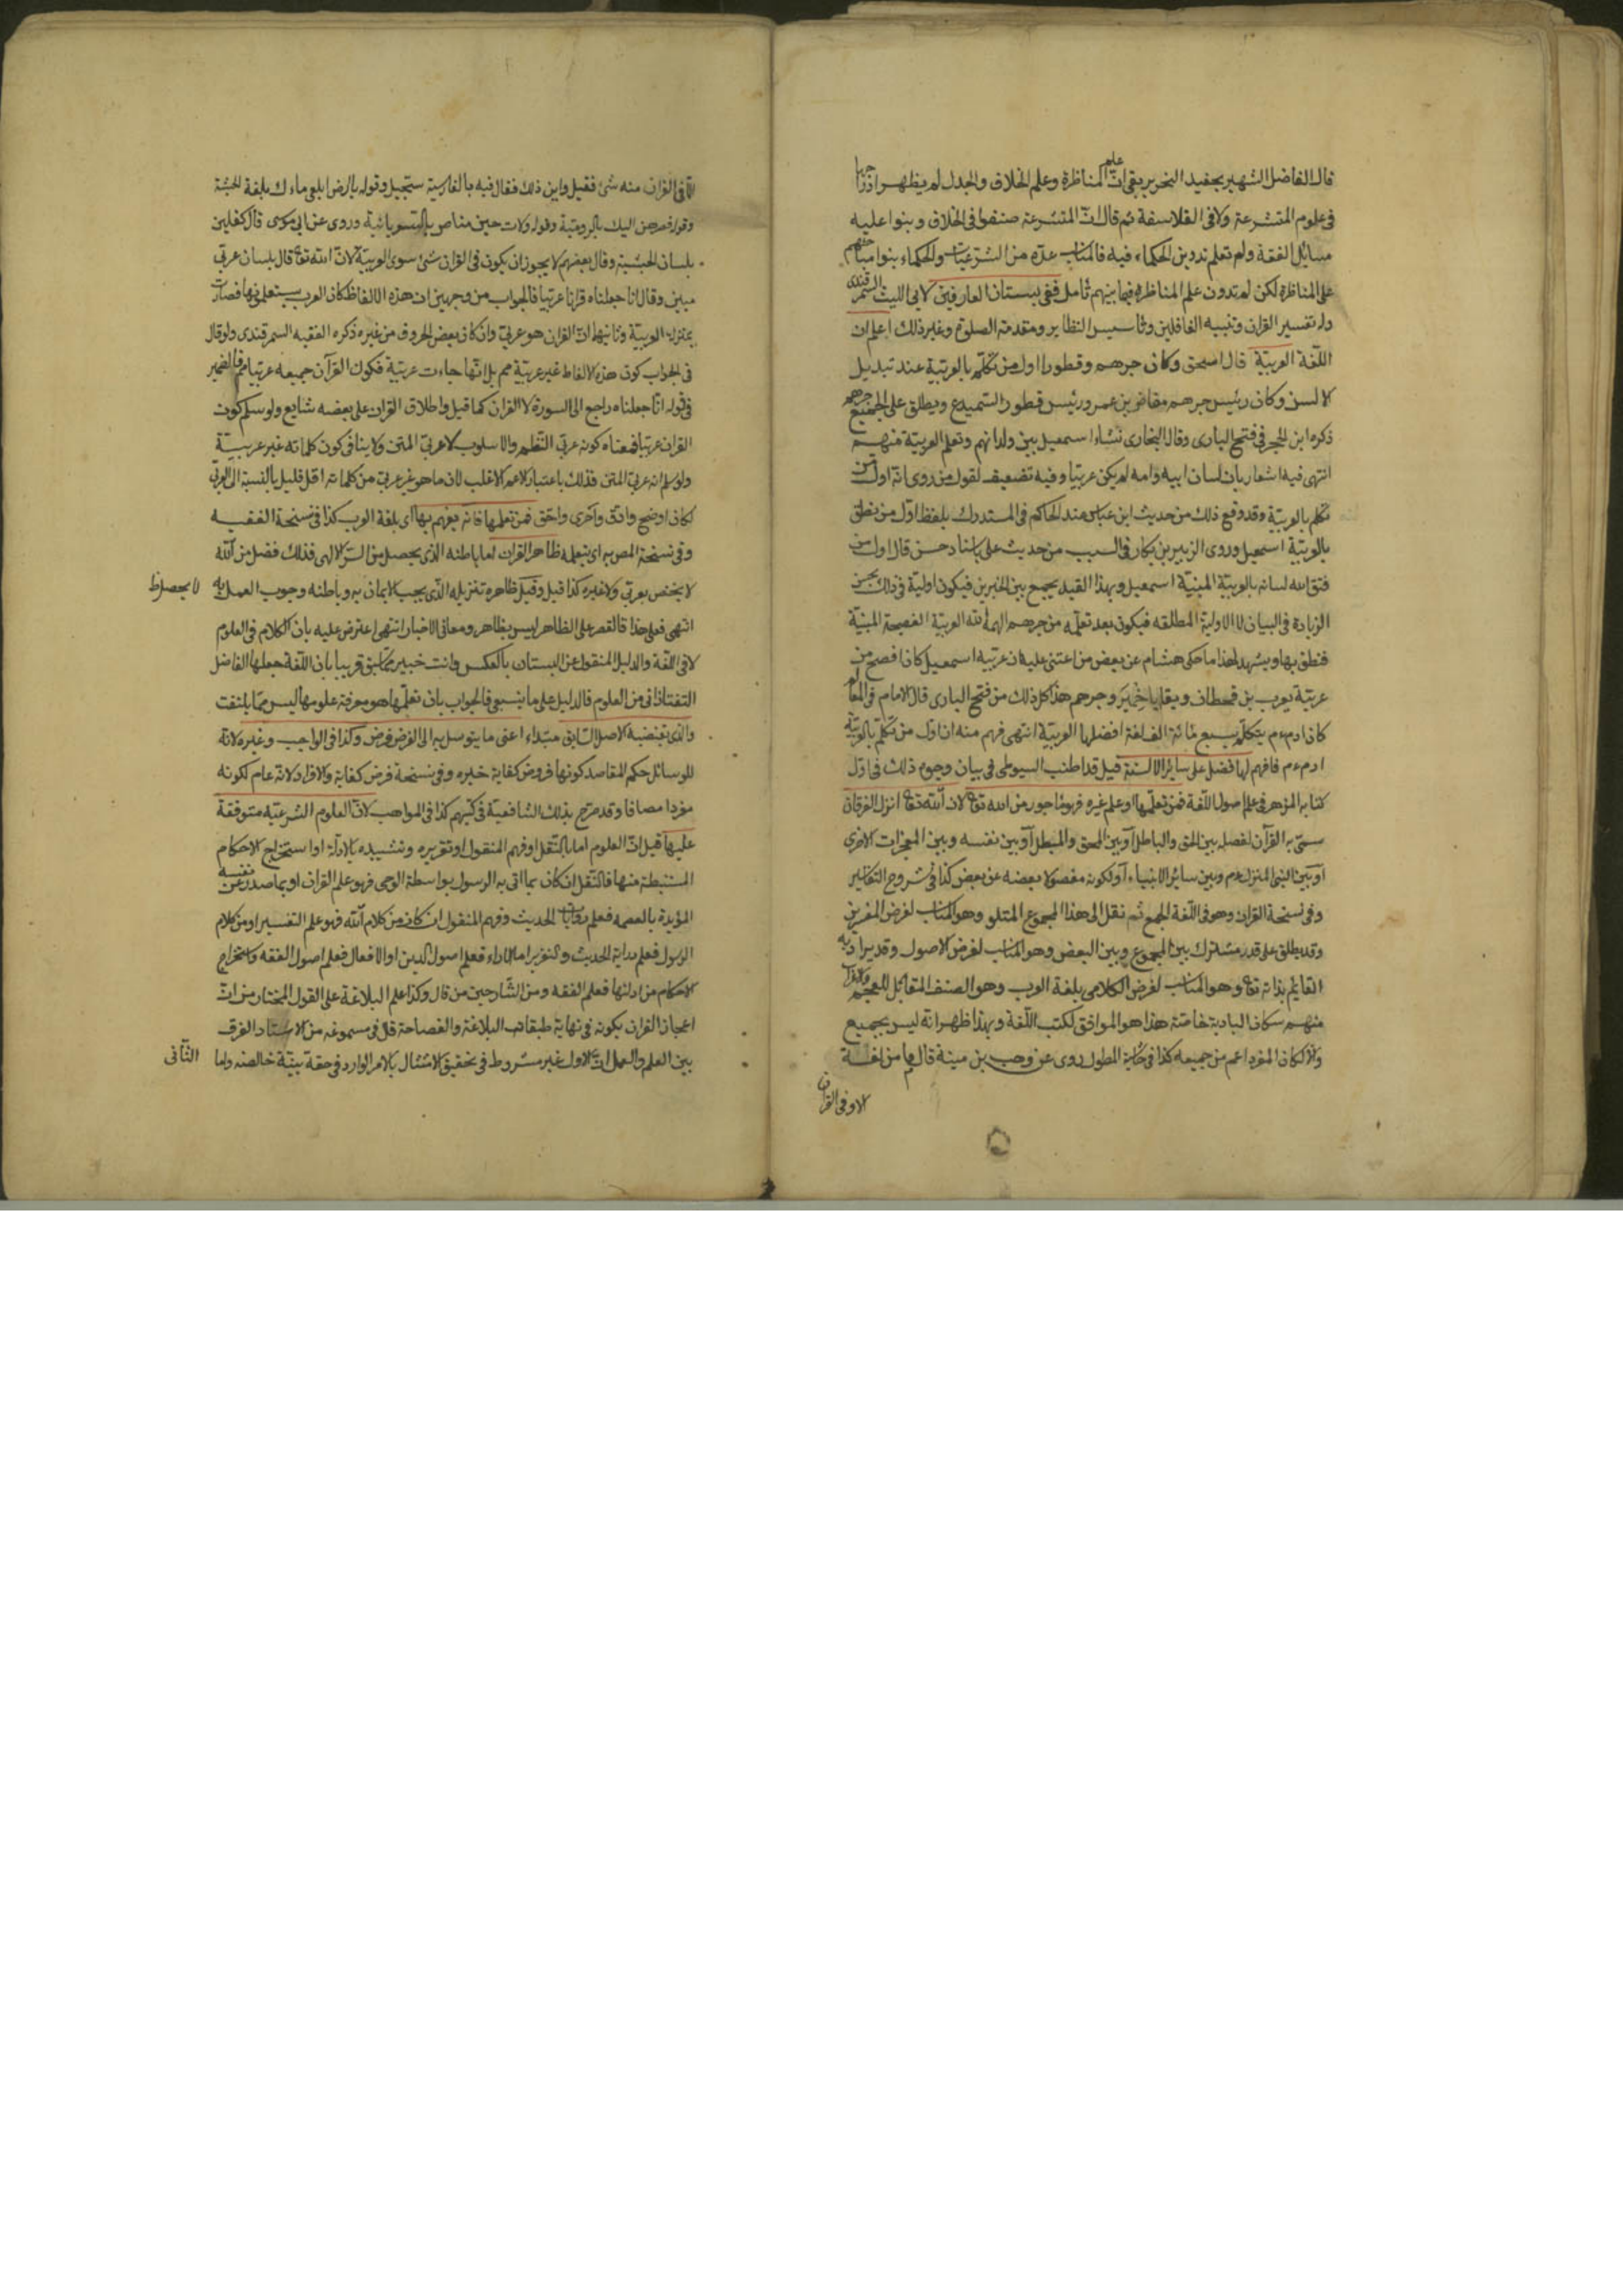 قال الفاضل الشهير بحفيد النحرير بقى ان علم المناظرة وعلم الخلاف والجدل لم يظهر
فى علوم المتشرعة ولا فى الفلاسفة ثم قال ان المتشرعة صنفوا فى الخلاف وبنوا عليه
مسائل الفقه ولم تعلم تدوين الحكماء فيه فالمناسب عده من الشرعيات والحكماء بنوا مباحثهم
على المناظرة لكن لم تدون علم المناظرة فيما بينهم تأمل ففى بستان العارفين لابى الليث السمرقندى
وله تفسير القران وتنبيه الغافلين وتأسيس النظاير ومقدمة الصلوة وغير ذلك اعلم ان
اللغة العربية قال اسحق وكان جرهم وقطورا اول من تكلم بالعربية عند تبديل
الالسن وكان رئيس جرهم مضاض بن عمرو ورئيس قطورا السميدع ويطلق على الجميع جرهم
ذكره ابن الحجر فى فتح البارى وقال البخارى نشاء اسمعيل بين ولدانهم وتعلم العربية منهم
انتهى فيه اشعار بان لسان ابيه وامه لم يكن عربيا وفيه تضعيف لقول من روى انه اول من
تكلم بالعربية وقد وقع ذلك من حديث ابن عباس عند الحاكم فى المستدرك بلفظ اول من نطق
بالعربية اسمعيل وروى الزبير بن بكار فى النسب من حديث على باسناد حسن قال اول من
فتق الله لسانه بالعربية المبنية اسمعيل وبهذا القيد يجمع بين الخبرين فيكون اولية فى ذلك بحسب
الزيادة فى البيان لا الاولية المطلقه فيكون بعد تعلمه من جرهم الهمه الله العربية الفصيحة المبنية
فنطق بها ويشهد لهذا ما حكى هشام عن بعض من اعتنى عليه ان عربية اسمعيل كان افصح من
عربية يعرب بن قحطان وبقايا حمير وجرهم هذا كل ذلك من فتح البارى قال الامام فى
كان ادم ءم يتكلم بسبع مائة الف لغة افضلها العربية انتهى فهم منه ان اول من تكلم بالعربية
ادم ءم فافهم لها فضل على سائر الالسنة قيل قد اطنب السيوطى فى بيان وجوه ذلك فى اول
كتابه المزهر فى علم اصول اللغة فمن تعلمها او علم غيره فهو مأجور من الله تع لان الله تع انزل الفرقان
سمى به القرآن لفصله بين الحق والباطل او بين المحق والمبطل او بين نفسه وبين المعجزات الاخرى
او بين النبى المنزل ءم وبين سائر الانبياء او لكونه مفصولا بعضه عن بعض كذا فى شروح التفاسير
وفى نسخة القران وهو فى اللغة الجمع ثم نقل الى هذا المجموع المتلو وهو المناسب لغرض المفسرين
وقد يطلق على قدر مشترك بين المجموع وبين البعض وهو المناسب لغرض الاصول وقد يراد به
القايم بذاته تع وهو المناسب لغرض الكلامى بلغة العرب وهو الصنف المقابل للعجم
منهم سكان البادية خاصة هذا هو الموافق لكتب اللغة وبهذا ظهر انه ليس بجميع
والا لكان المفرد اعم من جميعه كذا فى المطول روى عن وهب بن منبه قال ما من لغة
الا وفى القران
الا فى القران منه شئ فقيل واين ذلك فقال فيه بالفارسية سجيل وقوله يا ارض ابلعى ماءك بلغة الحبشة
وقوله فصرهن اليك بالرومية وقوله ولات حين مناص بالسريانية وروى عن ابى موسى قال كفلين
بلسان الحبشية وقال بعضهم لا يجوز ان يكون فى القران شئ سوى العربية لان الله تع قال بلسان عربى
مبين وقال انا جعلناه قرانا عربيا فالجواب من وجهين ان هذه الالفاظ كان العرب يستعملونها فصارت
بمنزلة العربية وثانيهما ان القران هو عربى وان كان بعض الحروف من غيره ذكره الفقيه السمرقندى ولو قال
فى الجواب كون هذه الالفاظ غير عربية مم بل انها جاءت عربية فكون القرآن جميعه عربيا فالضمير
فى قوله انا جعلناه راجع الى السورة لا القران كما قيل واطلاق القران على بعضه شايع ولو سلم كون
القران عربيا فمعناه كونه عربى النظم والاسلوب لا عربى المتن ولا ينافى كون كلماته غير عربية
ولو سلم انه عربى المتن فذلك باعتبار الاعم الاغلب لان ما هو غير عربى من كلماته اقل قليل بالنسبة الى العربى
لكان اوضح وادق واحرى واحق فمن تعلمها فانه يفهم بها اى بلغة العرب كذا فى نسخة الفقيه
وفى نسخة المص به اى بتعلمه ظاهر القران اما باطنه الذى يحصل من السر الالهى فذلك فضل من الله
لا يختص بعربى ولا غيره كذا قيل وقيل ظاهره تنزيله الذى يجب الايمان به وباطنه وجوب العمل به
لا يحصل ظ
انتهى فعلى هذا فالقصر على الظاهر ليس بظاهر ومعانى الاخبار انتهى اعترض عليه بان الكلام فى العلوم
لا فى اللغة والدليل المنقول عن البستان بالعكس وانت خبير مما سبق قريبا بان اللغة جعلها الفاضل
التفتازانى من العلوم فالدليل على ما ينبغى فالجواب بان تعلمها هو معرفة علومها ليس مما يلتفت
والذى تقتضيه الاصل السابق مبتداء اعنى ما يتوسل به الى الفرض فرض وكذا فى الواجب وغيره لانه
للوسائل حكم المقاصد كونها فروض كفاية خبره وفى نسخة فرض كفاية والافراد لانه عام لكونه
مفردا مضافا وقد صرح بذلك الشافعية فى كتبهم كذا فى المواهب لان العلوم الشرعية متوقفة
عليها قيل ان العلوم اما بالنقل او فهم المنقول او تقريره وتشييده بالادلة او استخراج الاحكام
المستنبطة منها فالنقل ان كان بما اتى به الرسول بواسطة الوحى فهو علم القران او بما صدر عن نفسه
المؤيدة بالعصمه فعلم رواية الحديث وفهم المنقول ان كان من كلام الله فهو علم التفسير او من كلام
الرسول فعلم دراية الحديث والتقرير اما للاراء فعلم اصول الدين او الافعال فعلم اصول الفقه واستخراج
الاحكام من ادلتها فعلم الفقه ومن الشارحين من قال وكذا علم البلاغة على القول المختار من ان
اعجاز القران بكونه فى نهاية طبقات البلاغة والفصاحة قل فى مسموعه من الاستاد الفرق
بين العلم والعمل ان الاول غير مشروط فى تحقيق الامتثال بالامر الوارد فى حقه بنية خالصه واما
الثانى